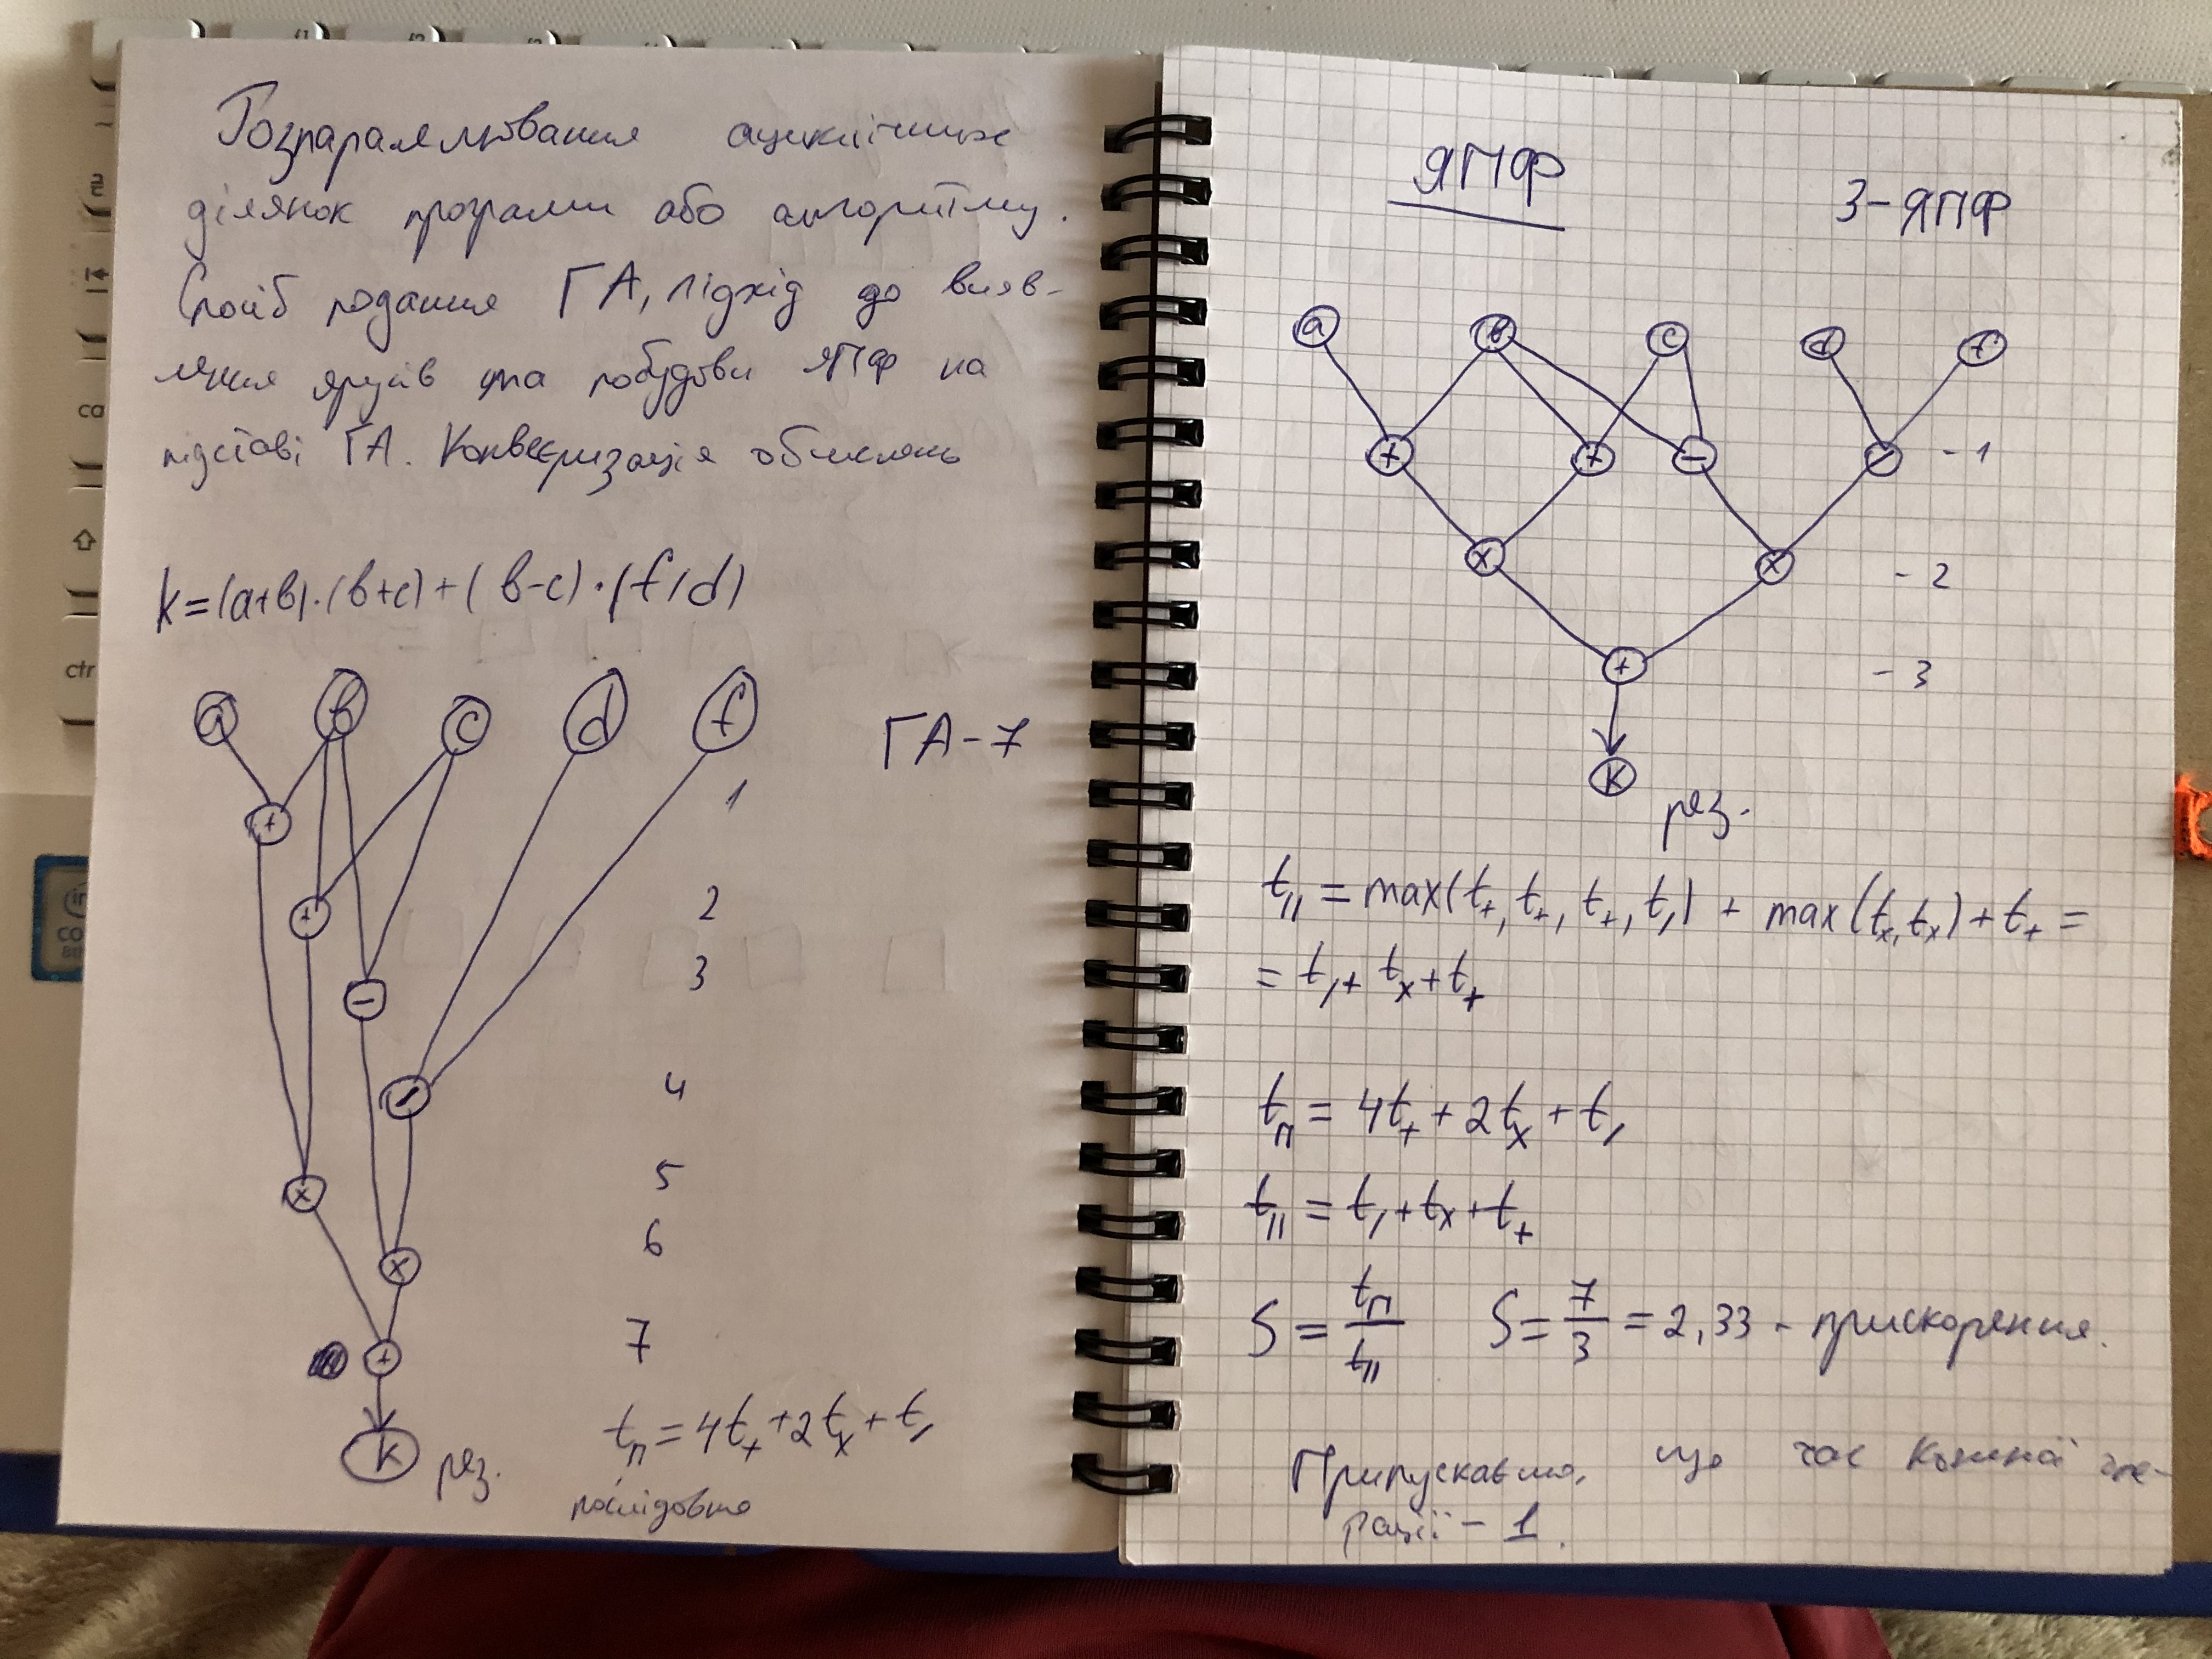 Розпаралелювання ациклічних
ділянок програми або алгоритму.
Спосіб подання ГА, підхід до вияв-
лення ярусів та побудови ЯПФ на
підставі ГА. Конвеєризація обчислень
k=(a+b)·(b+c)+(b-c)·(f/d)
a b c d f
ГА-7
+ 1
+ 2
- 3
/ 4
x 5
x 6
+ 7
k рез.
tп = 4t+ + 2tx + t/
послідовно
ЯПФ
3-ЯПФ
a b c d f
+ + - / -1
x x -2
+ -3
k
рез.
t|| = max(t+, t+, t+, t/) + max(tx, tx) + t+ =
= t/ + tx + t+
tп = 4t+ + 2tx + t/
t|| = t/ + tx + t+
S = tп/t|| S = 7/3 = 2,33 - прискорення.
Припускаємо, що час кожної опе-
рації - 1.
ca
ctr